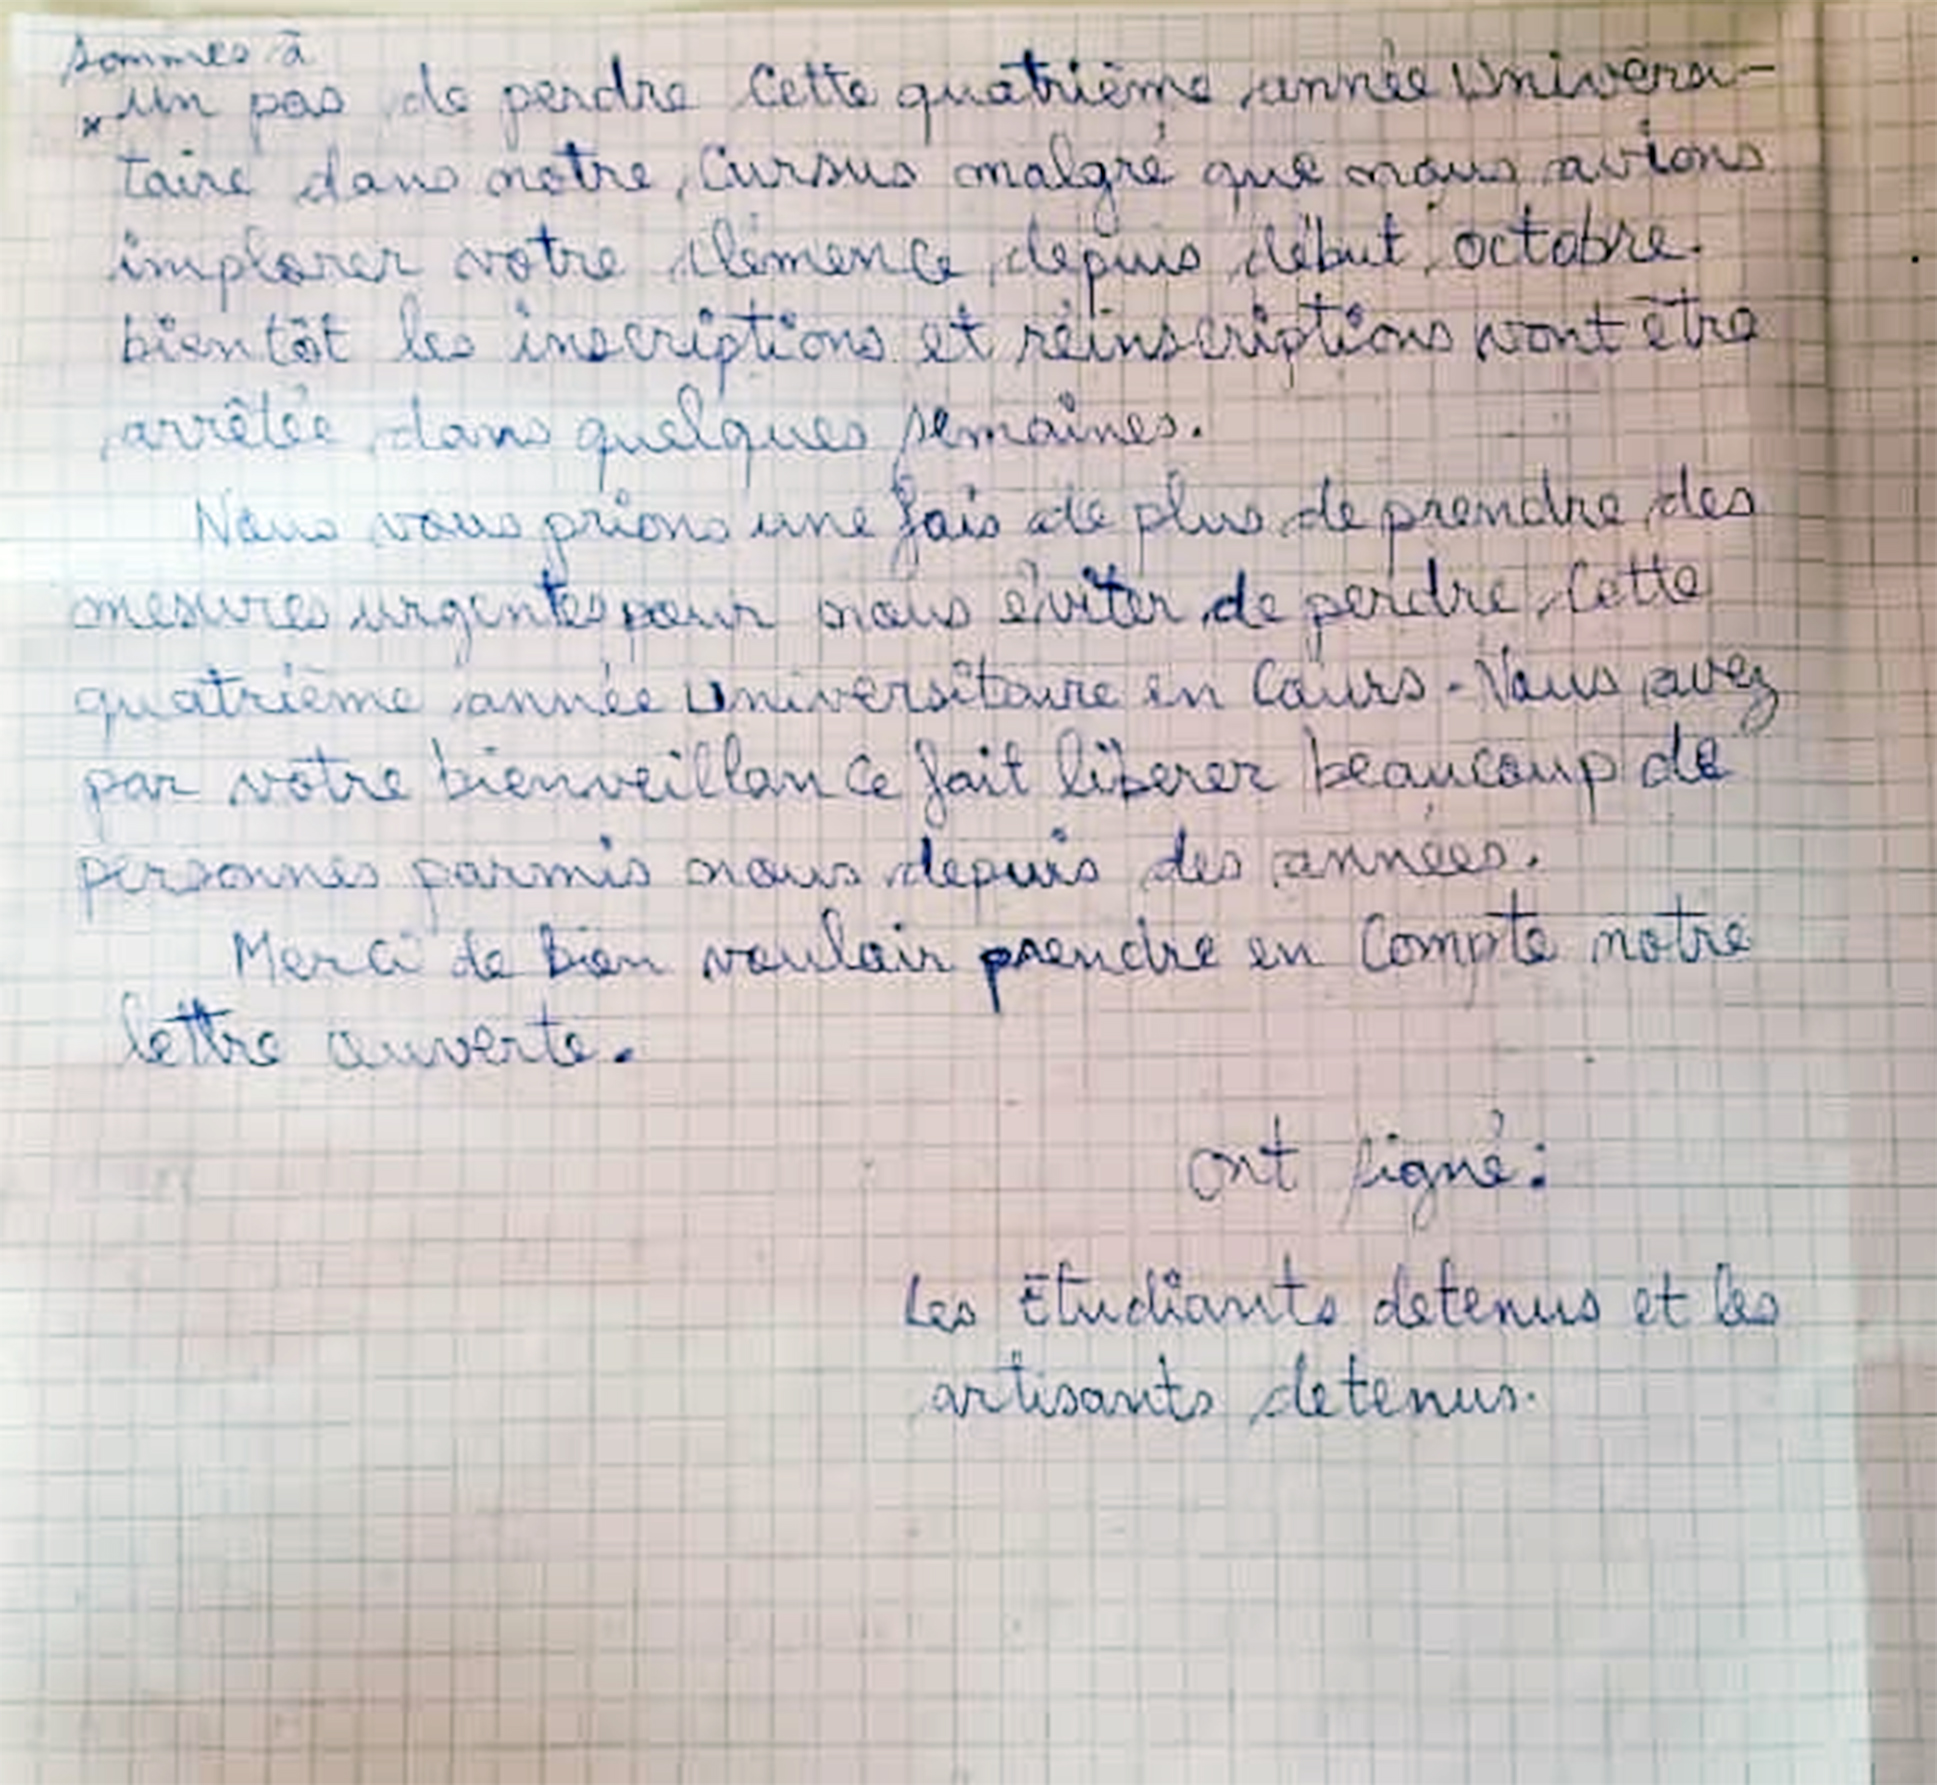 sommes à
* un pas de perdre cette quatrième année universi-
taire dans notre cursus malgré que nous avions
implorer votre clémence depuis début octobre.
bientôt les inscriptions et réinscriptions vont être
arrêtée dans quelques semaines.
Nous vous prions une fois de plus de prendre des
mesures urgentes pour nous éviter de perdre cette
quatrième année universitaire en cours. Vous avez
par votre bienveillance fait libérer beaucoup de
personnes parmis nous depuis des années.
Merci de bien vouloir prendre en compte notre
lettre ouverte.
Ont signé :
Les Etudiants detenus et les
artisants detenus.